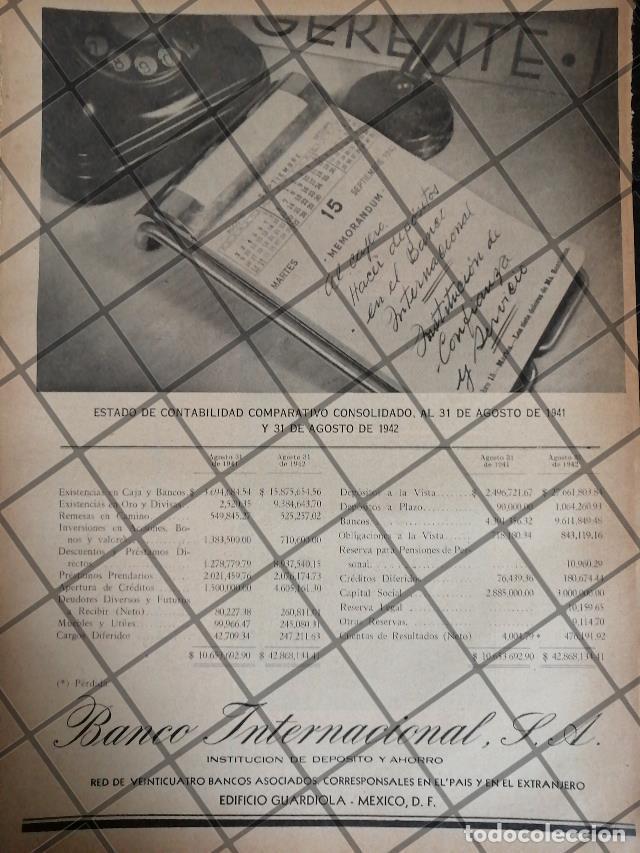 GERENTE
SEPTIEMBRE
15
MARTES
MEMORANDUM
Hacer depósitos
en el Banco
Internacional
Institución de
Confianza
y Servicio
ESTADO DE CONTABILIDAD COMPARATIVO CONSOLIDADO, AL 31 DE AGOSTO DE 1941
Y 31 DE AGOSTO DE 1942
Agosto 31 de 1941 Agosto 31 de 1942
Existencias en Caja y Bancos $ 15.875,654.56
Existencias en Oro y Divisas 2,520.35 9.384,643.70
Remesas en Camino 549,845.27 525,257.02
Inversiones en Acciones, Bo-
nos y valores 1.383,500.00 710,600.00
Descuentos y Préstamos Di-
rectos 1.278,779.79 8.937,540.15
Préstamos Prendarios 2.021,459.76 2.076,174.73
Apertura de Créditos 1.500,000.00 4.605,161.30
Deudores Diversos y Futuros
a Recibir (Neto) 80,227.38 260,811.01
Muebles y Utiles 99,966.47 245,080.31
Cargos Diferido 42,709.34 247,211.63
$ 10.653,692.90 $ 42.868,134.41
Agosto 31 de 1941 Agosto 31 de 1942
Depósitos a la Vista $ 2.496,721.67 $ 27.661,803.84
Depósitos a Plazo 90,000.00 1.064,260.93
Bancos 4.391,356.32 9.611,849.48
Obligaciones a la Vista 718,180.34 843,119.16
Reserva para Pensiones de Per-
sonal 10,960.29
Créditos Diferidos 76,439.36 180,674.44
Capital Social 2.885,000.00 3.000,000.00
Reserva Legal 10,159.65
Otras Reservas 9,114.70
Cuentas de Resultados (Neto) 4,004.79 * 476,191.92
$ 10.653,692.90 $ 42.868,134.41
(*) Pérdida
Banco Internacional, S.A.
INSTITUCION DE DEPOSITO Y AHORRO
RED DE VEINTICUATRO BANCOS ASOCIADOS. CORRESPONSALES EN EL PAIS Y EN EL EXTRANJERO
EDIFICIO GUARDIOLA - MEXICO, D. F.
todocoleccion